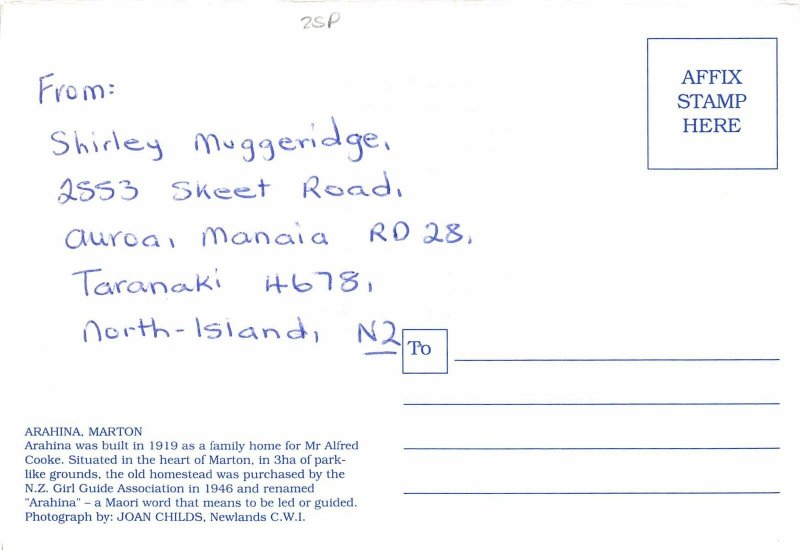 25P
AFFIX
STAMP
HERE
From:
Shirley Muggeridge,
2553 Skeet Road,
Auroa, Manaia RD 28,
Taranaki 4678,
North-Island, NZ
To
ARAHINA, MARTON
Arahina was built in 1919 as a family home for Mr Alfred
Cooke. Situated in the heart of Marton, in 3ha of park-
like grounds, the old homestead was purchased by the
N.Z. Girl Guide Association in 1946 and renamed
"Arahina" – a Maori word that means to be led or guided.
Photograph by: JOAN CHILDS, Newlands C.W.I.